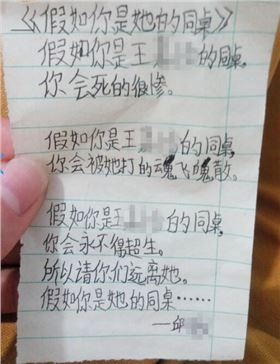 《假如你是她的同桌》
假如你是王的同桌,
你会死的很惨。
假如你是王的同桌
你会被她打的魂飞魄散。
假如你是王的同桌
你会永不得超生。
所以请你们远离她。
假如你是她的同桌……
—邱